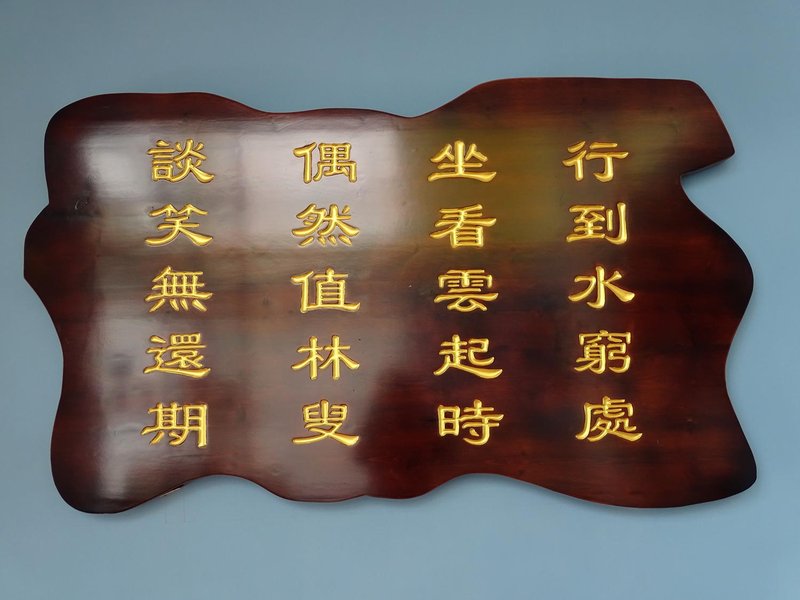 行到水窮處
坐看雲起時
偶然值林叟
談笑無還期